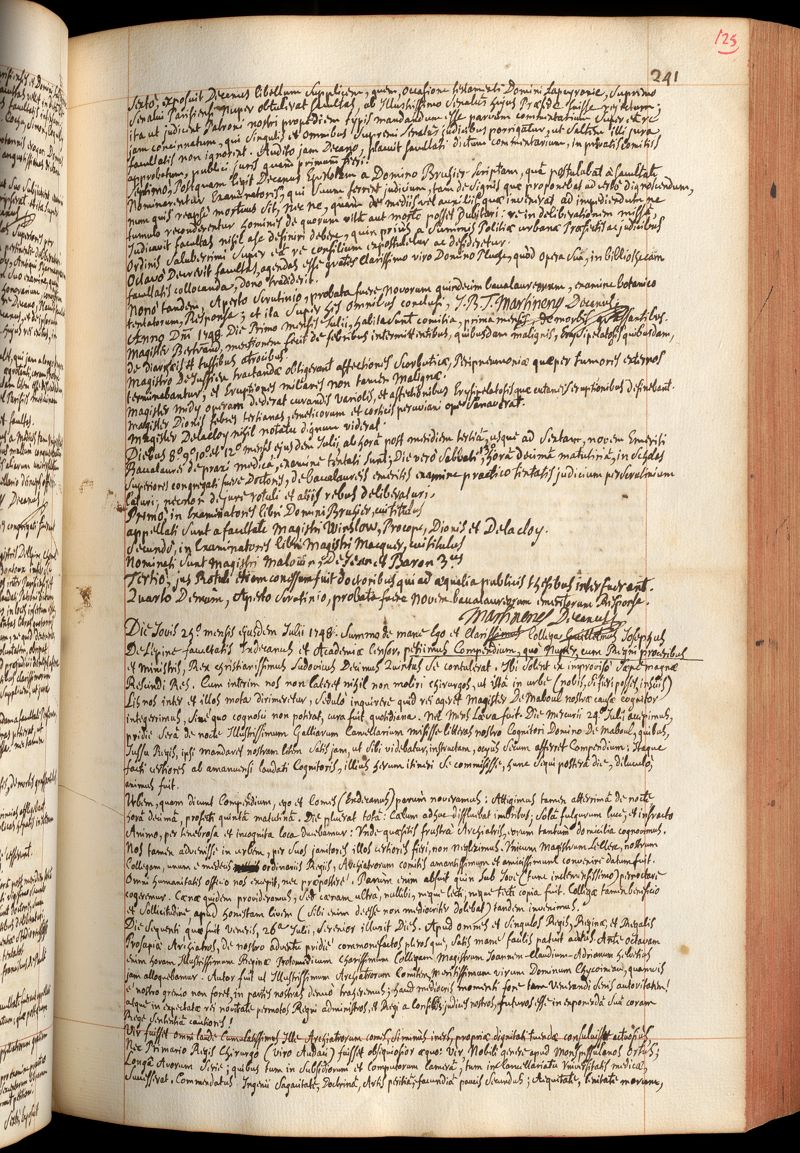 125
241
Sexto, exposuit Decanus libellum supplicem, quem, occasione testamenti Domini Lapeyronie, supremo
Senatui Parisiensi nuper obtulerat facultas, ab Illustrissimo Senatus hujus Praeside fuisse rejectum;
ita ut judicent Patroni nostri propediem typis mandandum esse parvum commentarium super eâ re
jam concinnatum, qui singulis et omnibus supremi Senatus judicibus porrigatur, ut saltem illi jura
facultatis non ignorent. Audito jam Decano, placuit facultati dictum commentarium, in privatis comitiis
approbatum, publici juris quam primum fieri.
Septimo, Postquam legit Decanus Epistolam a Domino Bruhier scriptam, quâ postulabat a facultate
Nominarentur Examinatores, qui suum ferrent judicium, tam de signis quae proponebat ad certo dignoscendum,
num quis reapse mortuus sit, nec ne, quam de mediis vel auxiliis quae invenerat ad impediendum ne
tumulo reconderentur homines de quorum vitâ aut morte posset dubitari: re in deliberationem missâ,
Judicavit facultas nihil a se definiri debere, quin prius a summis Politiae urbanae Praefectis ac judicibus
Ordinis saluberrimi super eâ re consilium expostuletur ac desideretur.
Octavo Decrevit facultas, agendas esse grates clarissimo viro Domino Pluche, quod opera sua, in bibliothecam
facultatis collocanda, dono tradiderit.
Nono tandem, Aperto Scrutinio, probata fuere novorum quindecim baccalaureorum, examine botanico
tentatorum, Responsa; et ita super his omnibus conclusi. J. B. T. Martinenq Decanus.
Anno Dni 1748 Die Primo mensis Julii, habita sunt comitia, prima mensis, de morbis grassantibus.
Magister Bertrand, mentionem fecit de febribus intermittentibus, quibusdam malignis, Erysipelatosis quibusdam,
de diarrhoeis et tussibus atrocibus.
Magistro De Jussieu tractandae obtigerant affectiones scorbuticae, Peripneumoniae quae per tumores externos
terminabantur, et Eruptiones miliares non tamen malignae.
Magister Midy operam dederat curandis variolis, et affectionibus Erysipelatosis quae cutaneis eruptionibus desinebant.
Magister Dionis febres tertianas, emeticorum et corticis peruviani ope sanaverat.
Magister Delacloy nihil notatu dignum viderat.
Diebus 8º. 9º. 10º et 12º mensis ejusdem Julii, ab horâ post meridiem tertiâ, usque ad sextam, novem Emeriti
Baccalaurei de praxi medica, examine tentati sunt; Die vero Sabbati 13º, horâ decimâ matutinâ, in scholas
superiores congregati fuere Doctores, de baccalaureis emeritis examine practico tentatis judicium per scrutinium
laturi; necnon de jure rotuli et aliis rebus deliberaturi.
Primo, in Examinatores libri Domini Bruhier, cui titulus
appellati sunt a facultate Magistri Winslow, Procope, Dionis et Delacloy.
Secundo, in Examinatores libri Magistri Macquer, cui titulus
Nominati sunt Magistri Malouin, De Jean et Baron 3us
Tertio, jus Rotuli etiam concessum fuit doctoribus qui ad aequalia publicis thesibus interfuerant.
Quarto Demum, Aperto scrutinio, probata fuere novem baccalaureorum emeritorum Responsa.
Martinenq Decanus
Die Jovis 25º. mensis ejusdem Julii 1748. Summo de mane Ego et clarissimus Collega Guillelmus Josephus
De Lépine facultatis Indecanus et Academiae Censor, petiimus Compendium, quo nuper, cum Regni proceribus
et ministris, Rex christianissimus Ludovicus Decimus Quintus se contulerat. Ibi solent ex improviso saepe magnae
Rescindi Res. Cum interim nos non lateret nihil non moliri chirurgos, ut ista in urbe (nobis, si fieri posset, insciis)
Lis nos inter et illos mota dirimeretur, sedulo inquirere quid rei ageret Magister De Maboul nostrae causae cognitor
integerrimus, sine quo cognosci non poterat, cura fuit quotidiana. Nec mens laeva fuit. Die Mercurii 24º. Julii accepimus,
pridie serâ de nocte Illustrissimum Galliarum Cancellarium misisse litteras nostro Cognitori Domino De Maboul, quibus,
Jussu Regis, ipsi mandaret nostram litem satis jam, ut sibi videbatur, instructam, ocyus secum afferret Compendium; Itaque
facti certiores ab amanuensi laudati Cognitoris, illius herum itineri se commisisse, hunc sequi posterâ die, diluculo,
animus fuit.
Urbem, quam dicunt Compendium, ego et Comes (Indecanus) parum noveramus: Attigimus tamen atterrimâ de nocte
horâ decimâ, profecti quintâ matutinâ. Die pluerat totâ: Caelum adhuc diffluebat imbribus; solâ fulgurum luce, et infracto
Animo, per tenebrosa et incognita loca ducebamur: Unde quaesitis frustra Archiatris, eorum tantum domicilia cognovimus.
Nos tamen advenisse in urbem, per suos janitores illos certiores fieri, non negleximus. Unicum Magistrum Le Hoc, nostrum
Collegam, unum e medicis ordinariis Regiis, Archiatrorum comitis amantissimum et amicissimum convenire datum fuit.
Omni humanitatis officio nos excepit, nec praepostere. Parum enim abfuit quin sub Jove (tunc inclementissimo) pernoctare
cogeremur. Caenae quidem provideramus; sed caenam ultra, nullibi, neque lecti, neque tecti copia fuit. Collegae tamen beneficio
et sollicitudine, apud honestam civem (sibi enim deesse non mediocriter dolebat) tandem invenimus.
Die sequenti quae fuit Veneris, 26ª Julii, serenior illuxit Dies. Apud omnes et singulos Regis, Reginae, et Regalis
Prosapiae Archiatros, de nostro adventu pridie commonefactos plerosque, satis mane facilis patuit aditus. Ante octavam
enim horam Illustrissimum Reginae Protomedicum Charissimum Collegam Magistrum Joannem-Claudium-Adrianum Helvetius
jam alloquebamur. Autor fuit ut Illustrissimum Archiatrorum Comitem, meritissimum virum Dominum Chycoineau, quamvis
e nostro gremio non foret, in partes nostras denuo traheremus; haud mediocris momenti fore tam venerandi senis autoritatem!
atque in expectatae rei novitate permotos Regni administros, et Regi a consiliis judices nostros, futuros esse in exponendâ suâ coram
Rege sententiâ cautiores!
Vir fuisset omni laude cumulatissimus ille Archiatrorum comes, si minus iners, propriae dignitati tuendae consuluisset actuosus;
Rex Primario Regis Chirurgo (viro audaci) fuisset obsequiosior aequo: Vir, Nobili genere apud Monspessulanos Ortus;
Longâ Avorum serie; quibus tum in subsidiorum et computorum camerâ, tum in Cancellariatu Universitatis medicae,
successerat. Commendatus Ingenii sagacitate, Doctrinâ, Artis peritiâ, facundiâ paucis secundus; Aequitate, lenitate morum,